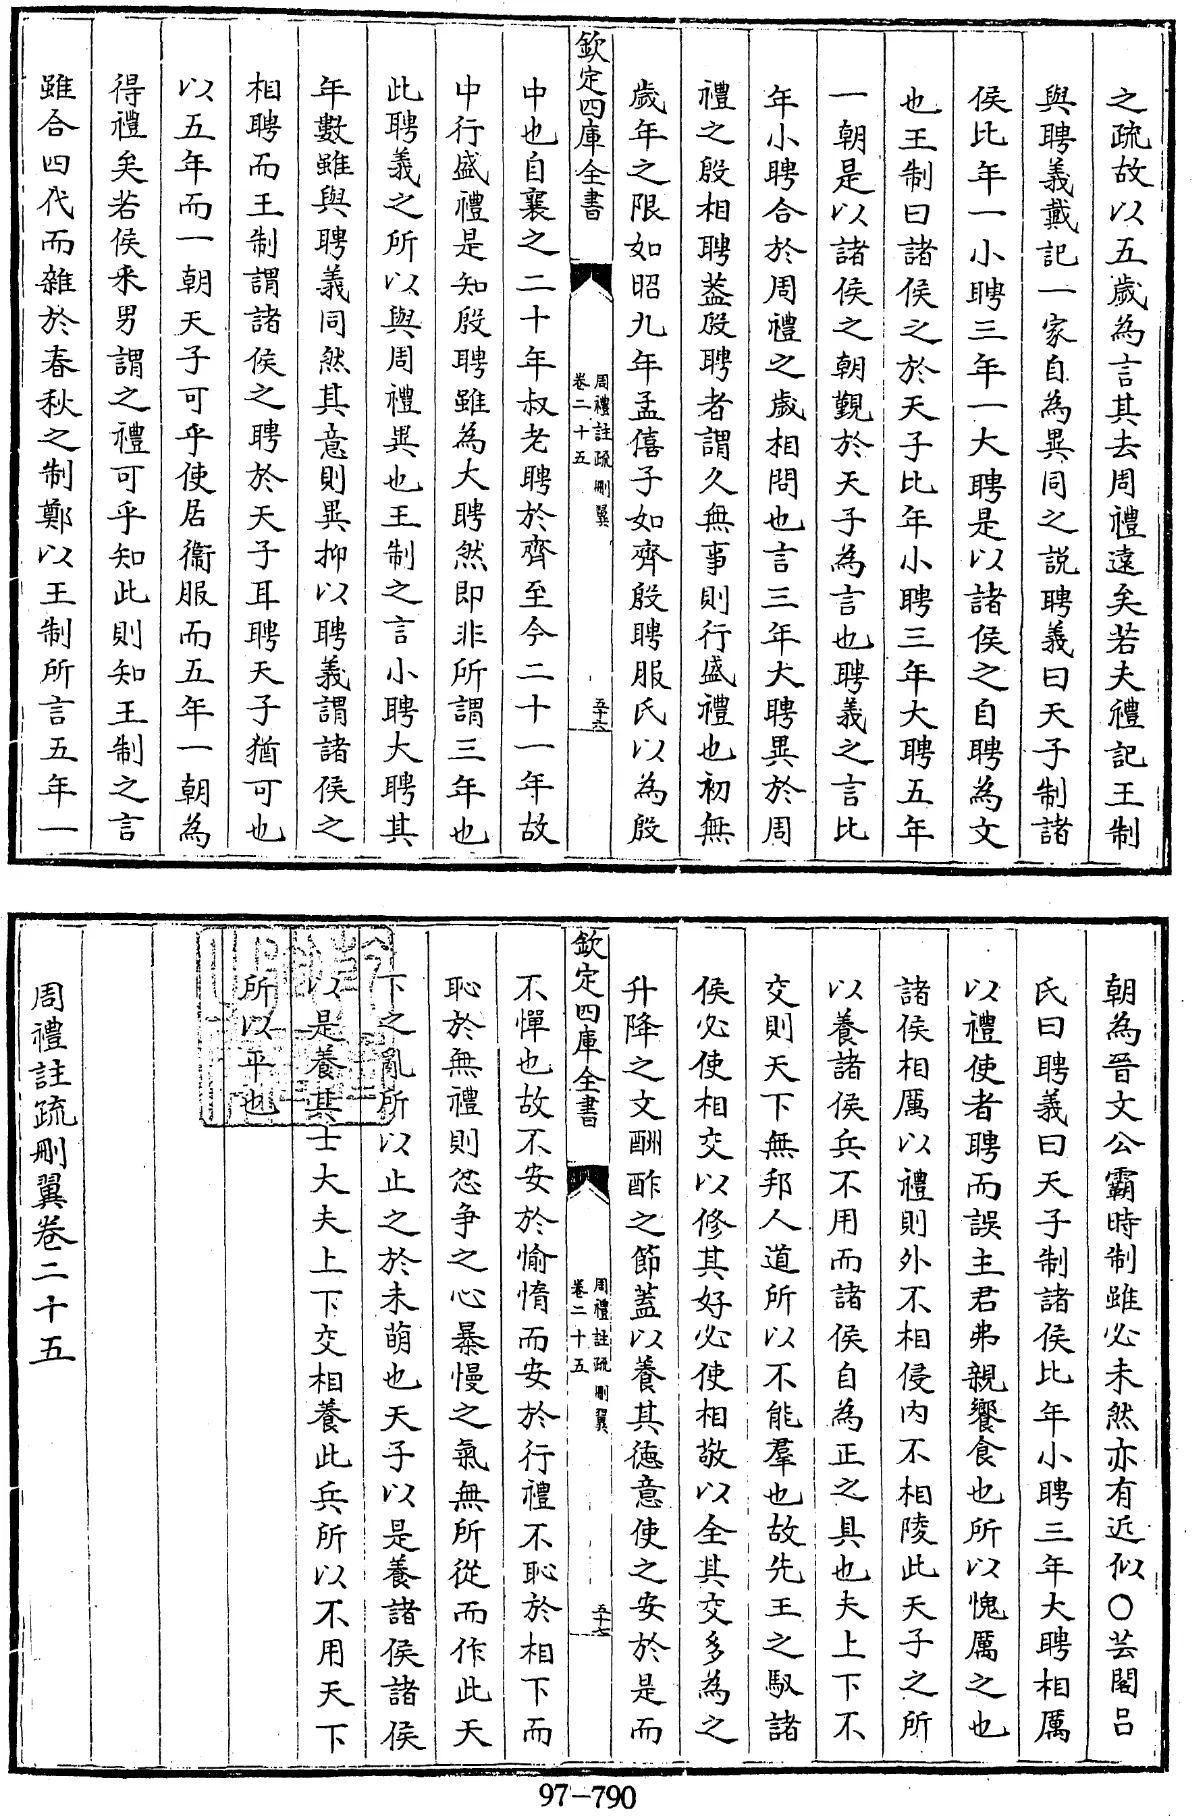 之疏故以五歲為言其去周禮遠矣若夫禮記王制
與聘義戴記一家自為異同之說聘義曰天子制諸
侯比年一小聘三年一大聘是以諸侯之自聘為文
也王制曰諸侯之於天子比年小聘三年大聘五年
一朝是以諸侯之朝覲於天子為言也聘義之言比
年小聘合於周禮之歲相問也言三年大聘異於周
禮之殷相聘葢殷聘者謂久無事則行盛禮也初無
歲年之限如昭九年孟僖子如齊殷聘服氏以為殷
欽定四庫全書
周禮註疏刪翼
卷二十五
五十六
中也自襄之二十年叔老聘於齊至今二十一年故
中行盛禮是知殷聘雖為大聘然即非所謂三年也
此聘義之所以與周禮異也王制之言小聘大聘其
年數雖與聘義同然其意則異抑以聘義謂諸侯之
相聘而王制謂諸侯之聘於天子耳聘天子猶可也
以五年而一朝天子可乎使居衛服而五年一朝為
得禮矣若侯采男謂之禮可乎知此則知王制之言
雖合四代而雜於春秋之制鄭以王制所言五年一
朝為晉文公霸時制雖必未然亦有近似〇芸閣呂
氏曰聘義曰天子制諸侯比年小聘三年大聘相厲
以禮使者聘而誤主君弗親饗食也所以愧厲之也
諸侯相厲以禮則外不相侵内不相陵此天子之所
以養諸侯兵不用而諸侯自為正之具也夫上下不
交則天下無邦人道所以不能羣也故先王之馭諸
侯必使相交以修其好必使相敬以全其交多為之
升降之文酬酢之節蓋以養其德意使之安於是而
欽定四庫全書
周禮註疏刪翼
卷二十五
五十七
不憚也故不安於愉惰而安於行禮不恥於相下而
恥於無禮則忿争之心暴慢之氣無所從而作此天
下之亂所以止之於未萌也天子以是養諸侯諸侯
以是養其士大夫上下交相養此兵所以不用天下
所以平也
周禮註疏刪翼卷二十五
97-790